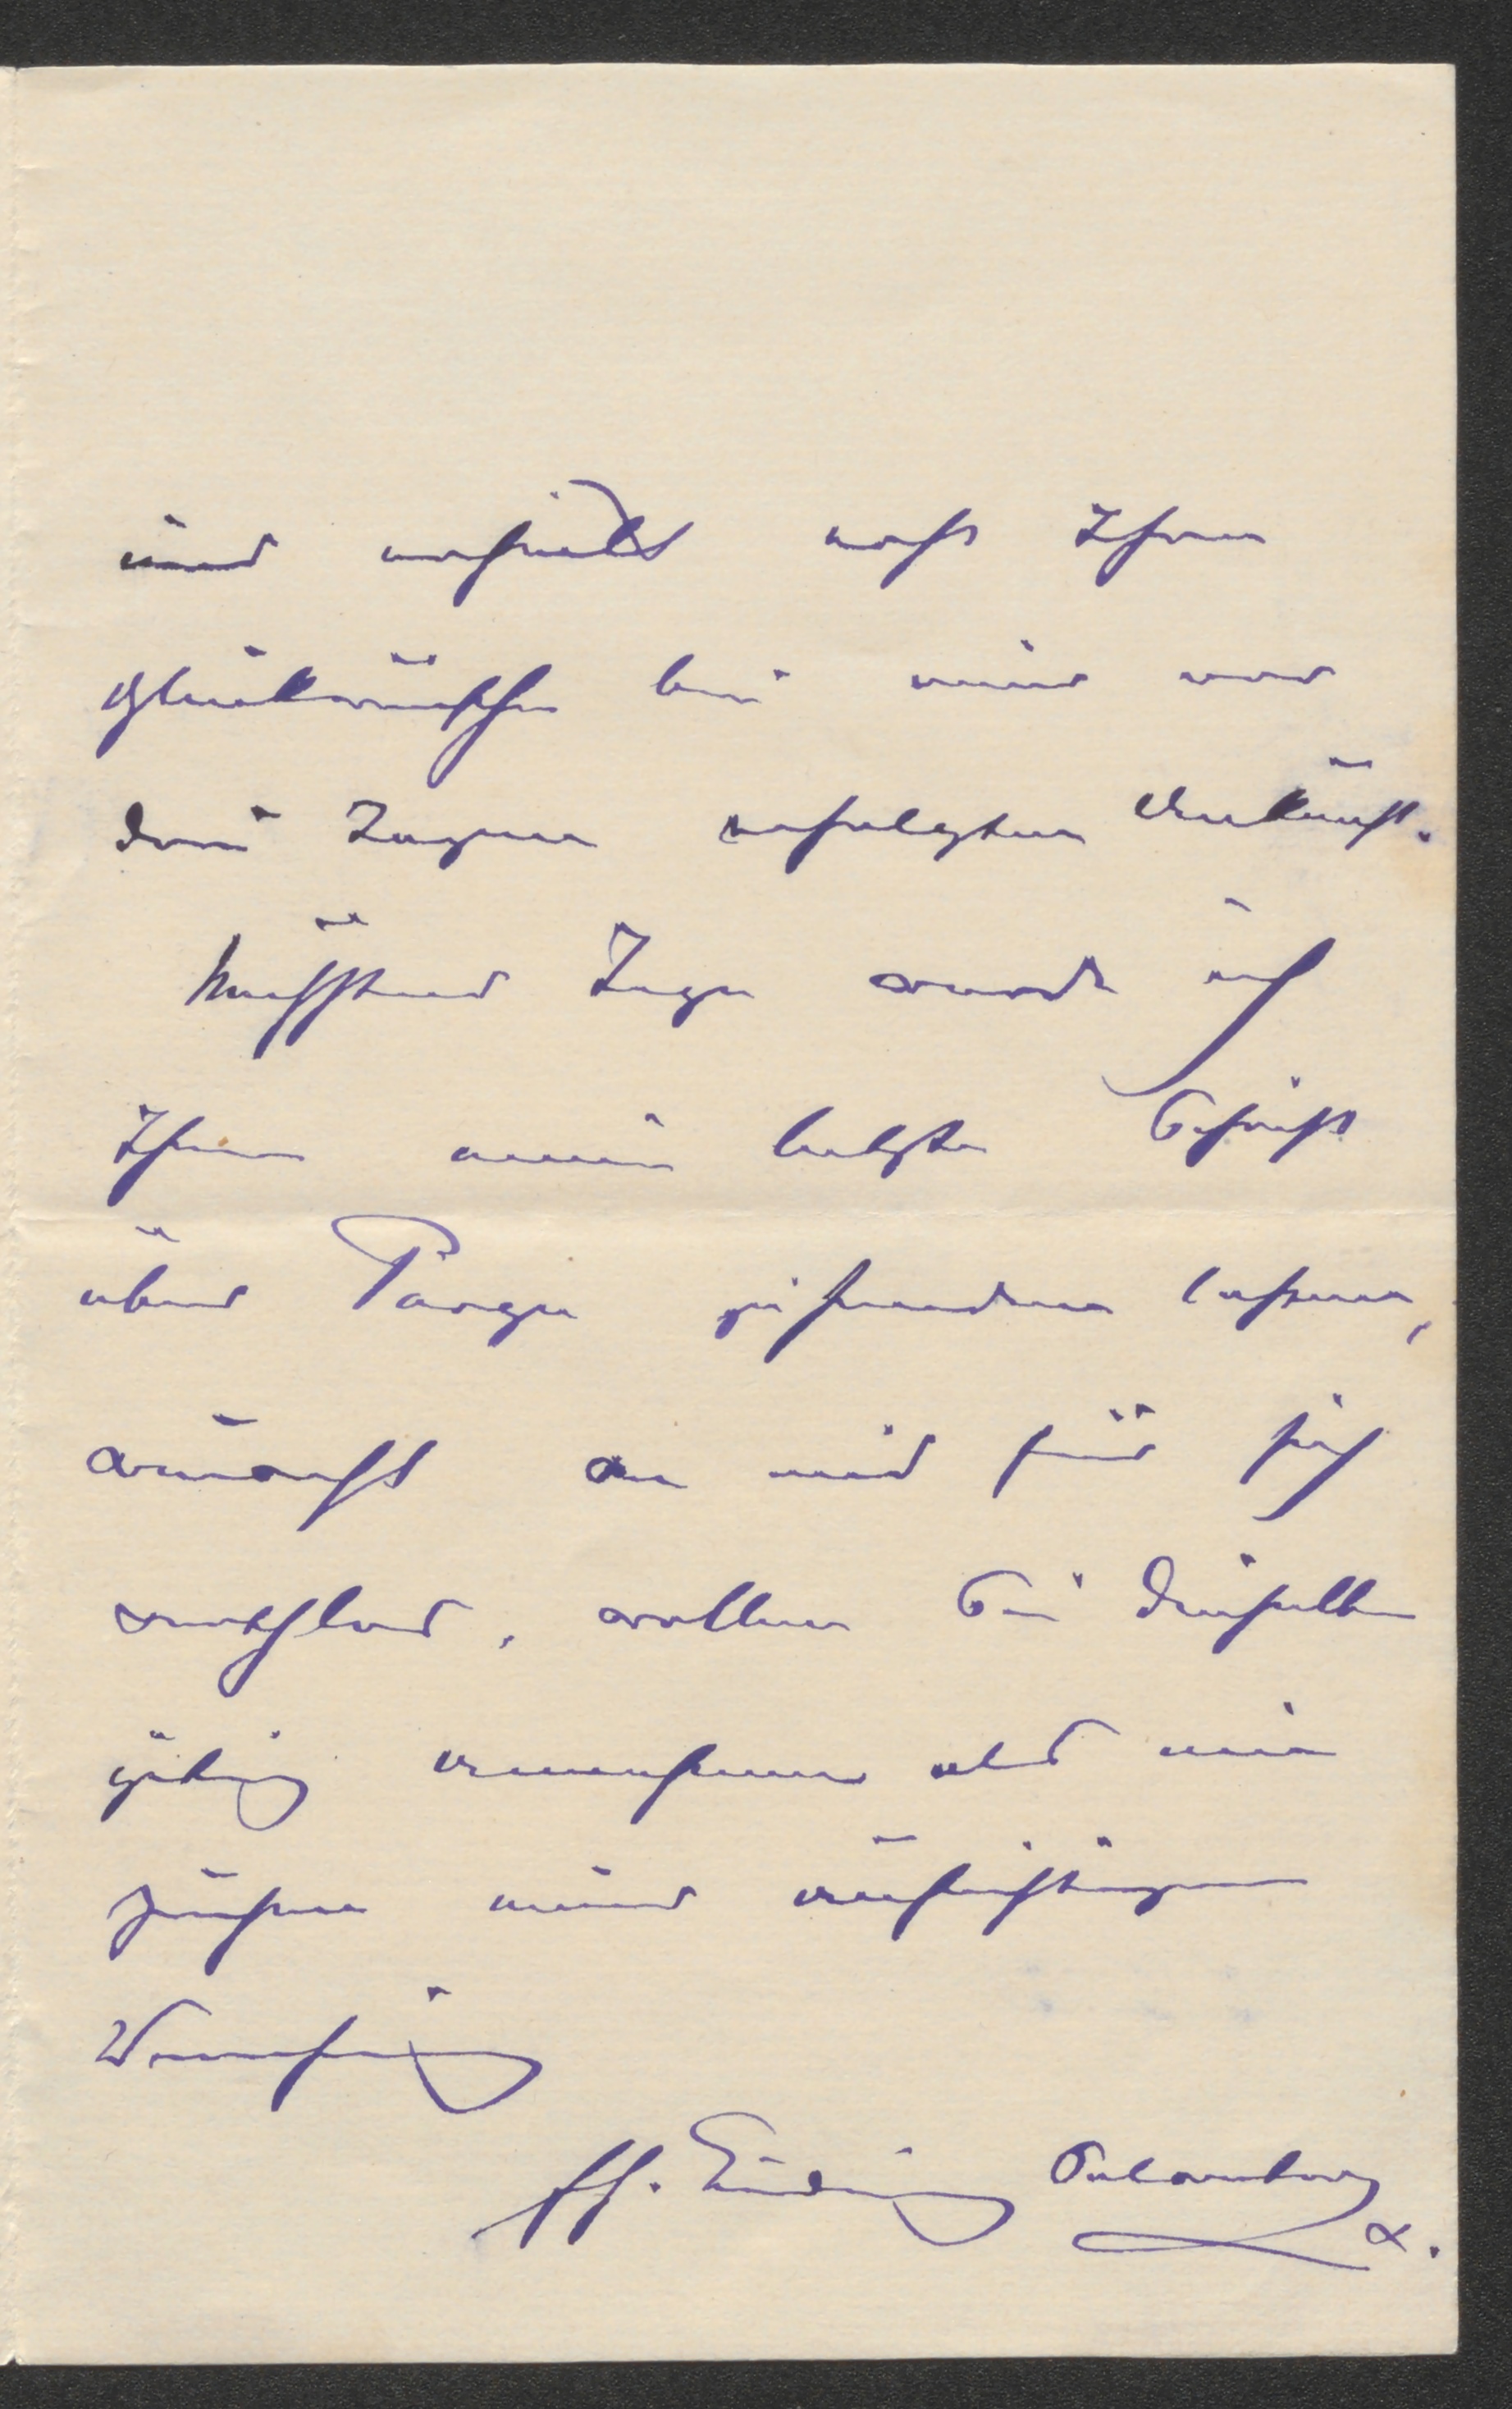 und erhielt erst Ihren
Glückwünsche bei meiner vor
drei Tagen erfolgten Ankunft.
Nächster Tage werde ich
Ihnen meine letzte Schrift
über Parga zusenden lassen,
an und für sich
werthlos, wollen Sie dieselbe
gütig annehmen als ein
Zeichen meiner aufrichtigen
Verehrung
Ehg. Ludwig Salvator